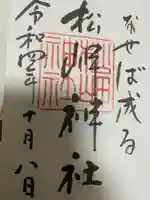 なせば成る
松岬神社
令和四年十月八日